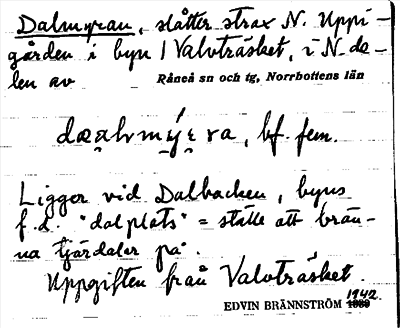 Dalmyran, slåtter strax N. Uppi-
gården i byn / Valvträsket, i N. de-
len av Råneå sn och tg, Norrbottens län
dæ̀alvmy̌ɛra, bf. fem.
Ligger vid Dalbacken, byns
f.d. "dalplats" = ställe att brän-
na tjärdalar på.
Uppgiften från Valvträsket.
EDVIN BRÄNNSTRÖM 1942